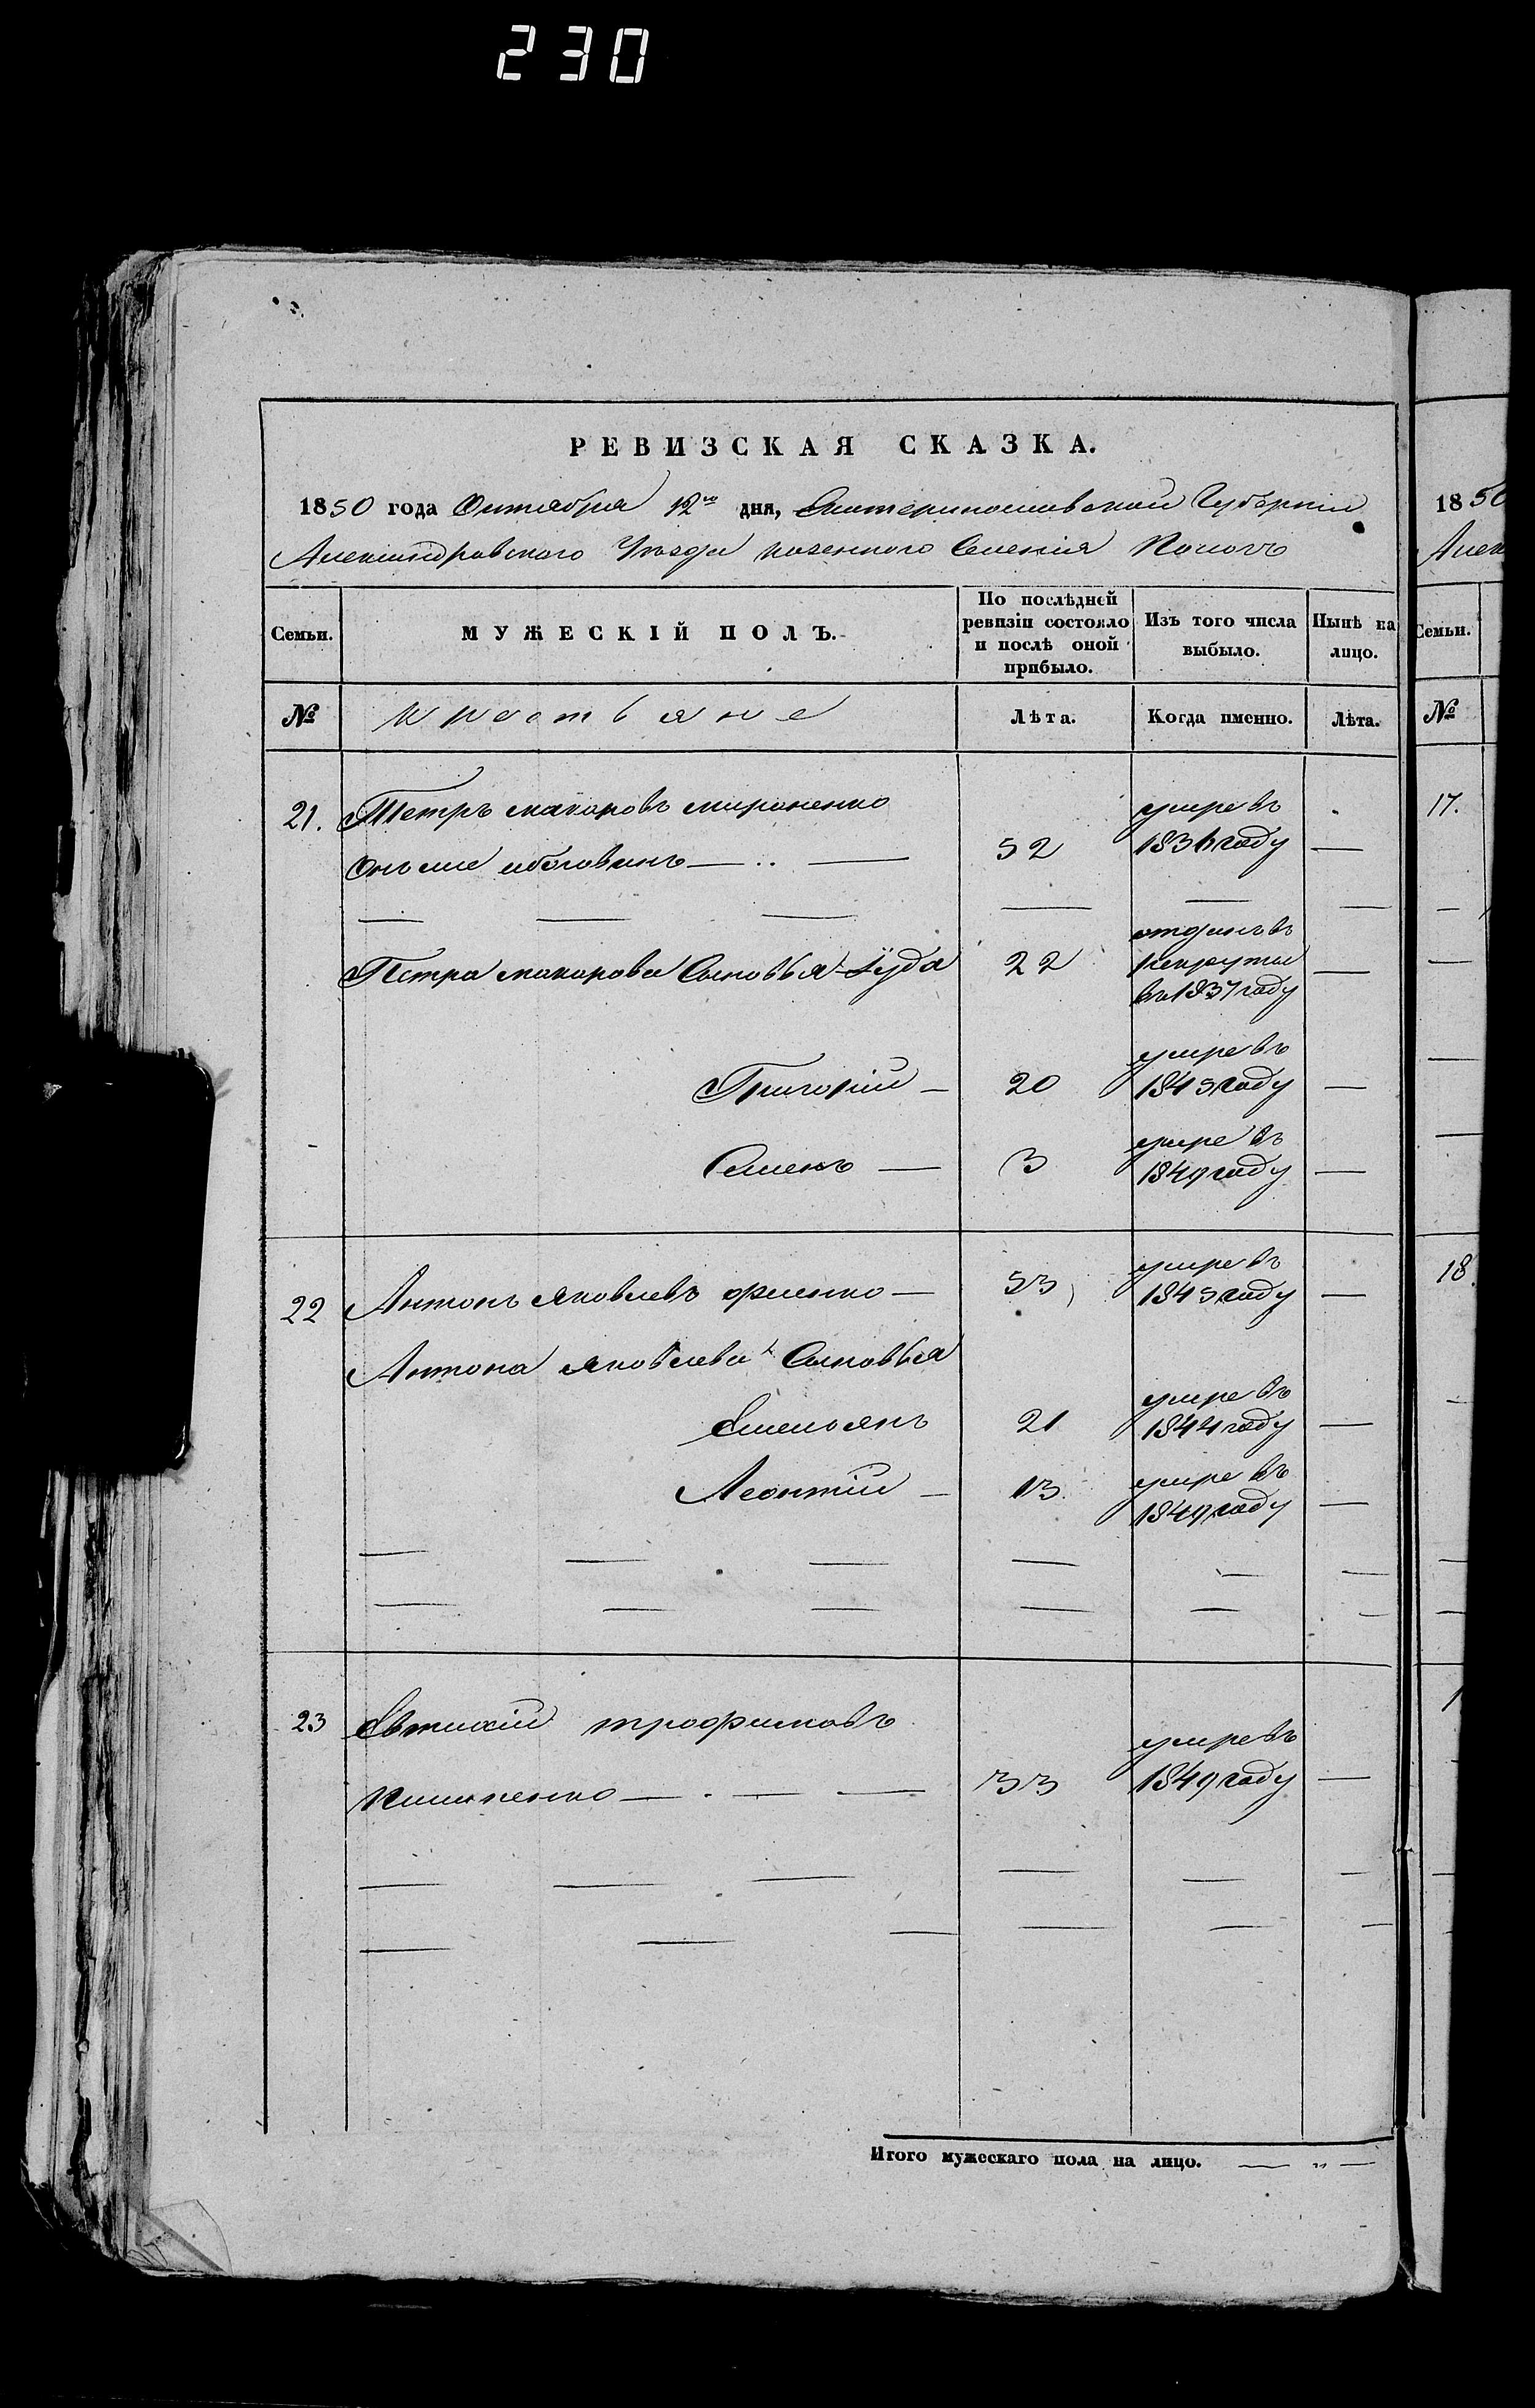 230
РЕВИЗСКАЯ СКАЗКА.
1850 года Октября 12го дня, Екатеринославской Губерніи
Александровского Уѣзда казенного Селенія
Семьи.
МУЖЕСКІЙ ПОЛЪ.
По послѣдней ревизіи состояло и послѣ оной прибыло.
Изъ того числа выбыло.
Нынѣ на лицо.
№
Крестьяне
Лѣта.
Когда именно.
Лѣта.
21. Петръ Макаровъ Мироненко
умре въ
Онъ же — .. — 52 1836 году —
отданъ въ
Петра Макарова Сыновья Іуда 22 рекруты —
въ 1837 году
умре въ
Григорій — 20 1843 году —
умре въ
Семенъ — 3 1849 году —
умре въ
22 Антонъ Яковлевъ — 53 1843 году —
Антона Яковлева Сыновья
умре въ
Емельянъ 21 1844 году —
Леонтій — 13 умре въ
1849 году —
23 Евтихій Трофимовъ
умре въ
— . — — 33 1849 году —
Итого мужескаго пола на лицо. — „ —
1850
Алек
Семьи.
№
17.
18.